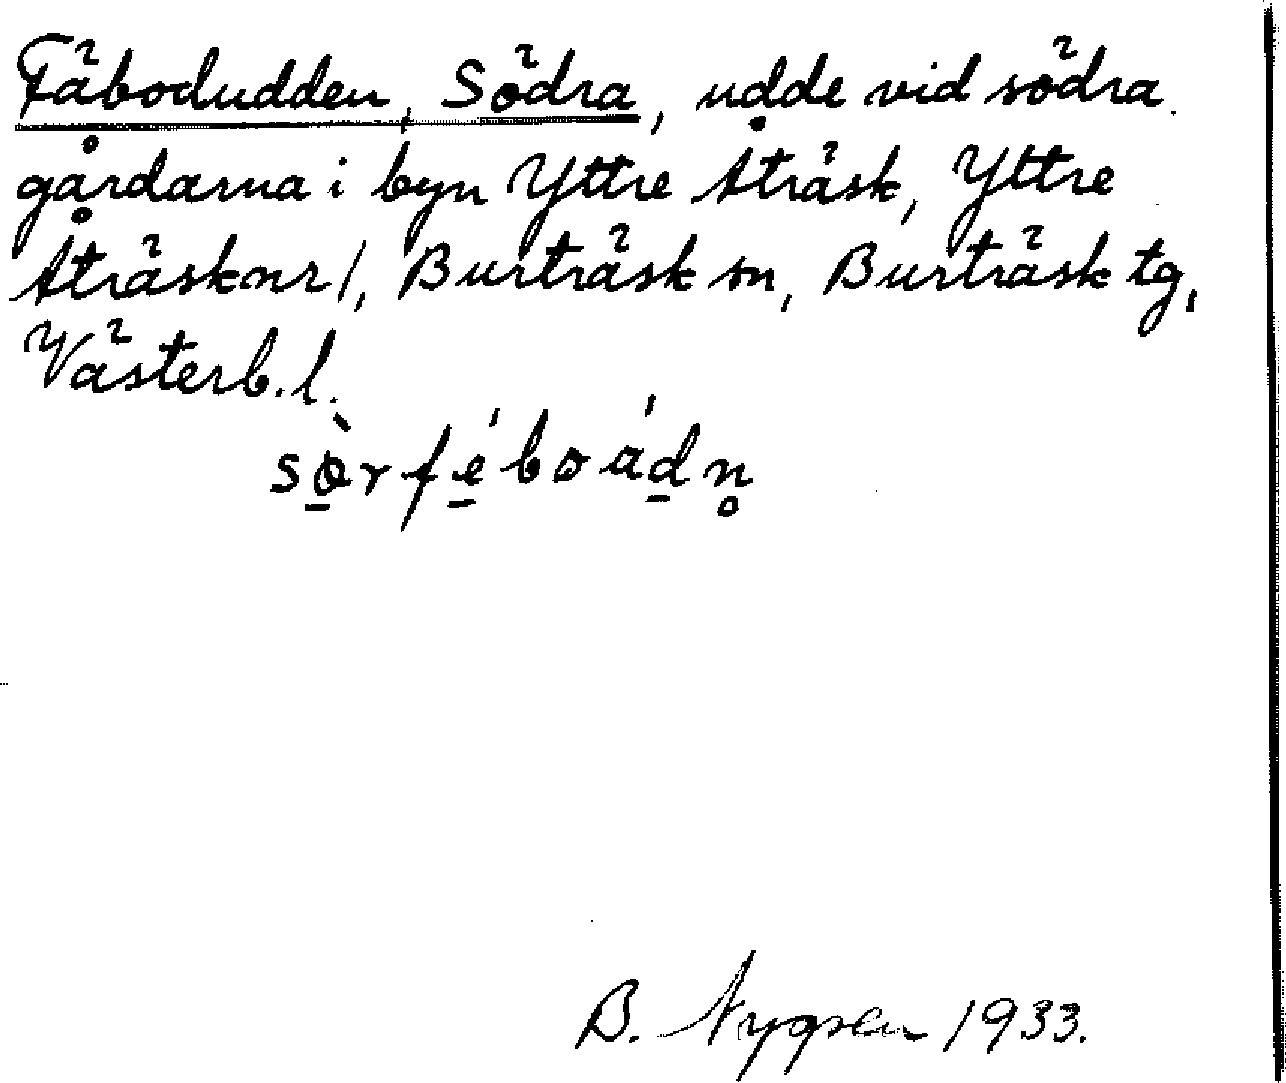 Fäbodudden, Södra, udde vid södra
gårdarna i byn Yttre Åträsk, Yttre
Åträsk nr 1, Burträsk sn, Burträsk tg,
Västerb. l.
sø̀rféboádn̥
B. Nygren 1933.